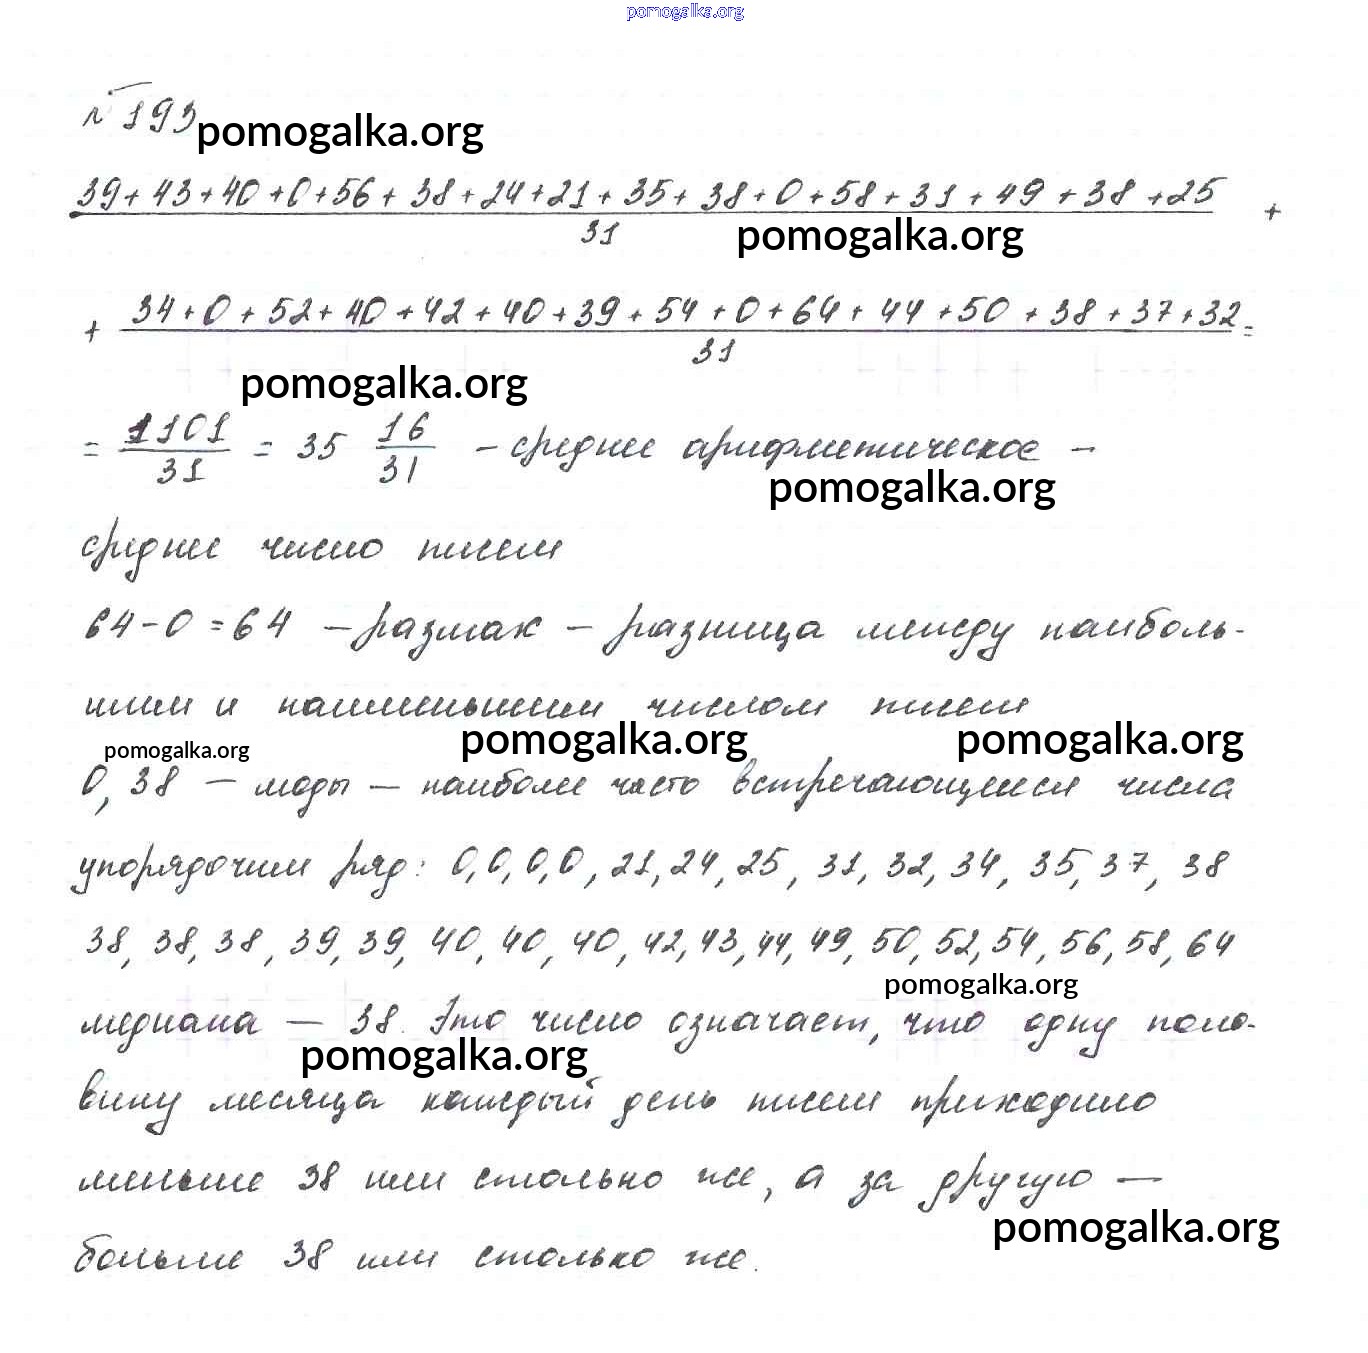 pomogalka.org
№ 193
pomogalka.org
39+43+40+0+56+38+24+21+35+38+0+58+31+49+38+25
+
31
pomogalka.org
+ 34+0+52+40+42+40+39+54+0+64+44+50+38+37+32 =
31
pomogalka.org
= 1101/31 = 35 16/31 - среднее арифметическое -
pomogalka.org
среднее число писем
64-0=64 - размах - разница между наиболь-
шим и наименьшим числом писем
pomogalka.org pomogalka.org pomogalka.org
0, 38 - моды - наиболее часто встречающиеся числа
упорядочим ряд: 0,0,0,0,21,24,25,31,32,34,35,37,38
38,38,38,39,39,40,40,40,42,43,44,49,50,52,54,56,58,64
pomogalka.org
медиана - 38. Это число означает, что одну поло-
pomogalka.org
вину месяца каждый день писем приходило
меньше 38 или столько же, а за другую -
pomogalka.org
больше 38 или столько же.